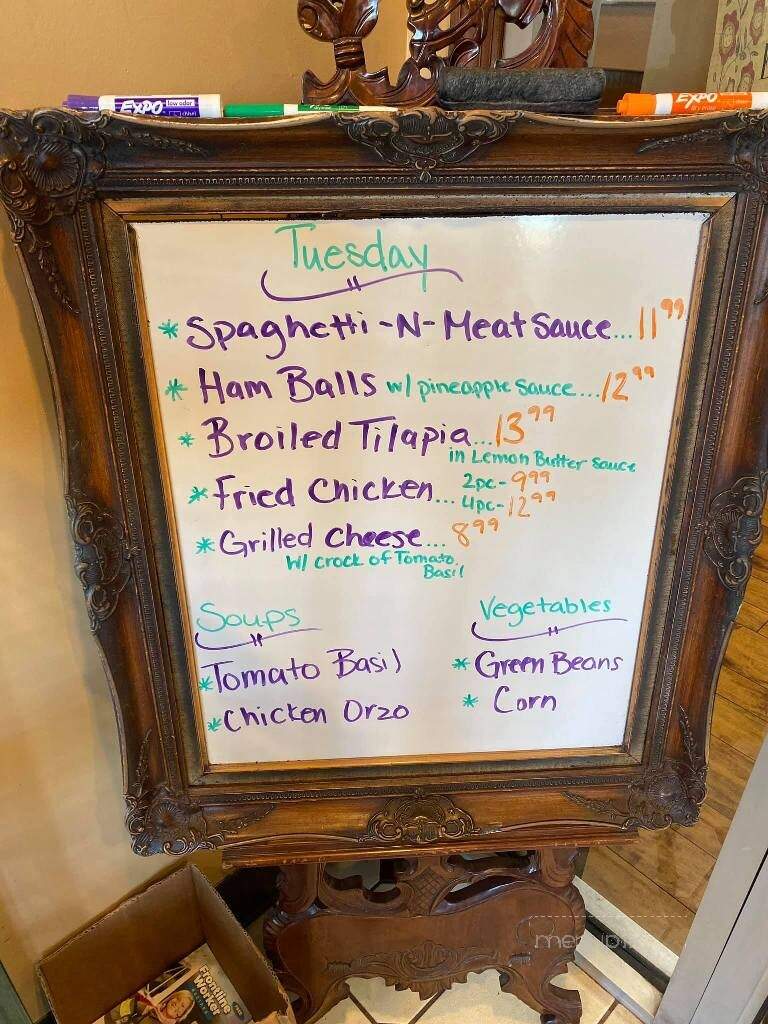 EXPO low odor
EXPO
Tuesday
* Spaghetti-N-Meat Sauce...11 99
* Ham Balls w/ pineapple sauce...12 99
* Broiled Tilapia...13 99
in Lemon Butter Sauce
* Fried Chicken... 2pc- 9 99
4pc- 12 99
* Grilled Cheese... 8 99
w/ crock of Tomato
Basil
Soups
* Tomato Basil
* Chicken Orzo
Vegetables
* Green Beans
* Corn
Frontline
Worker